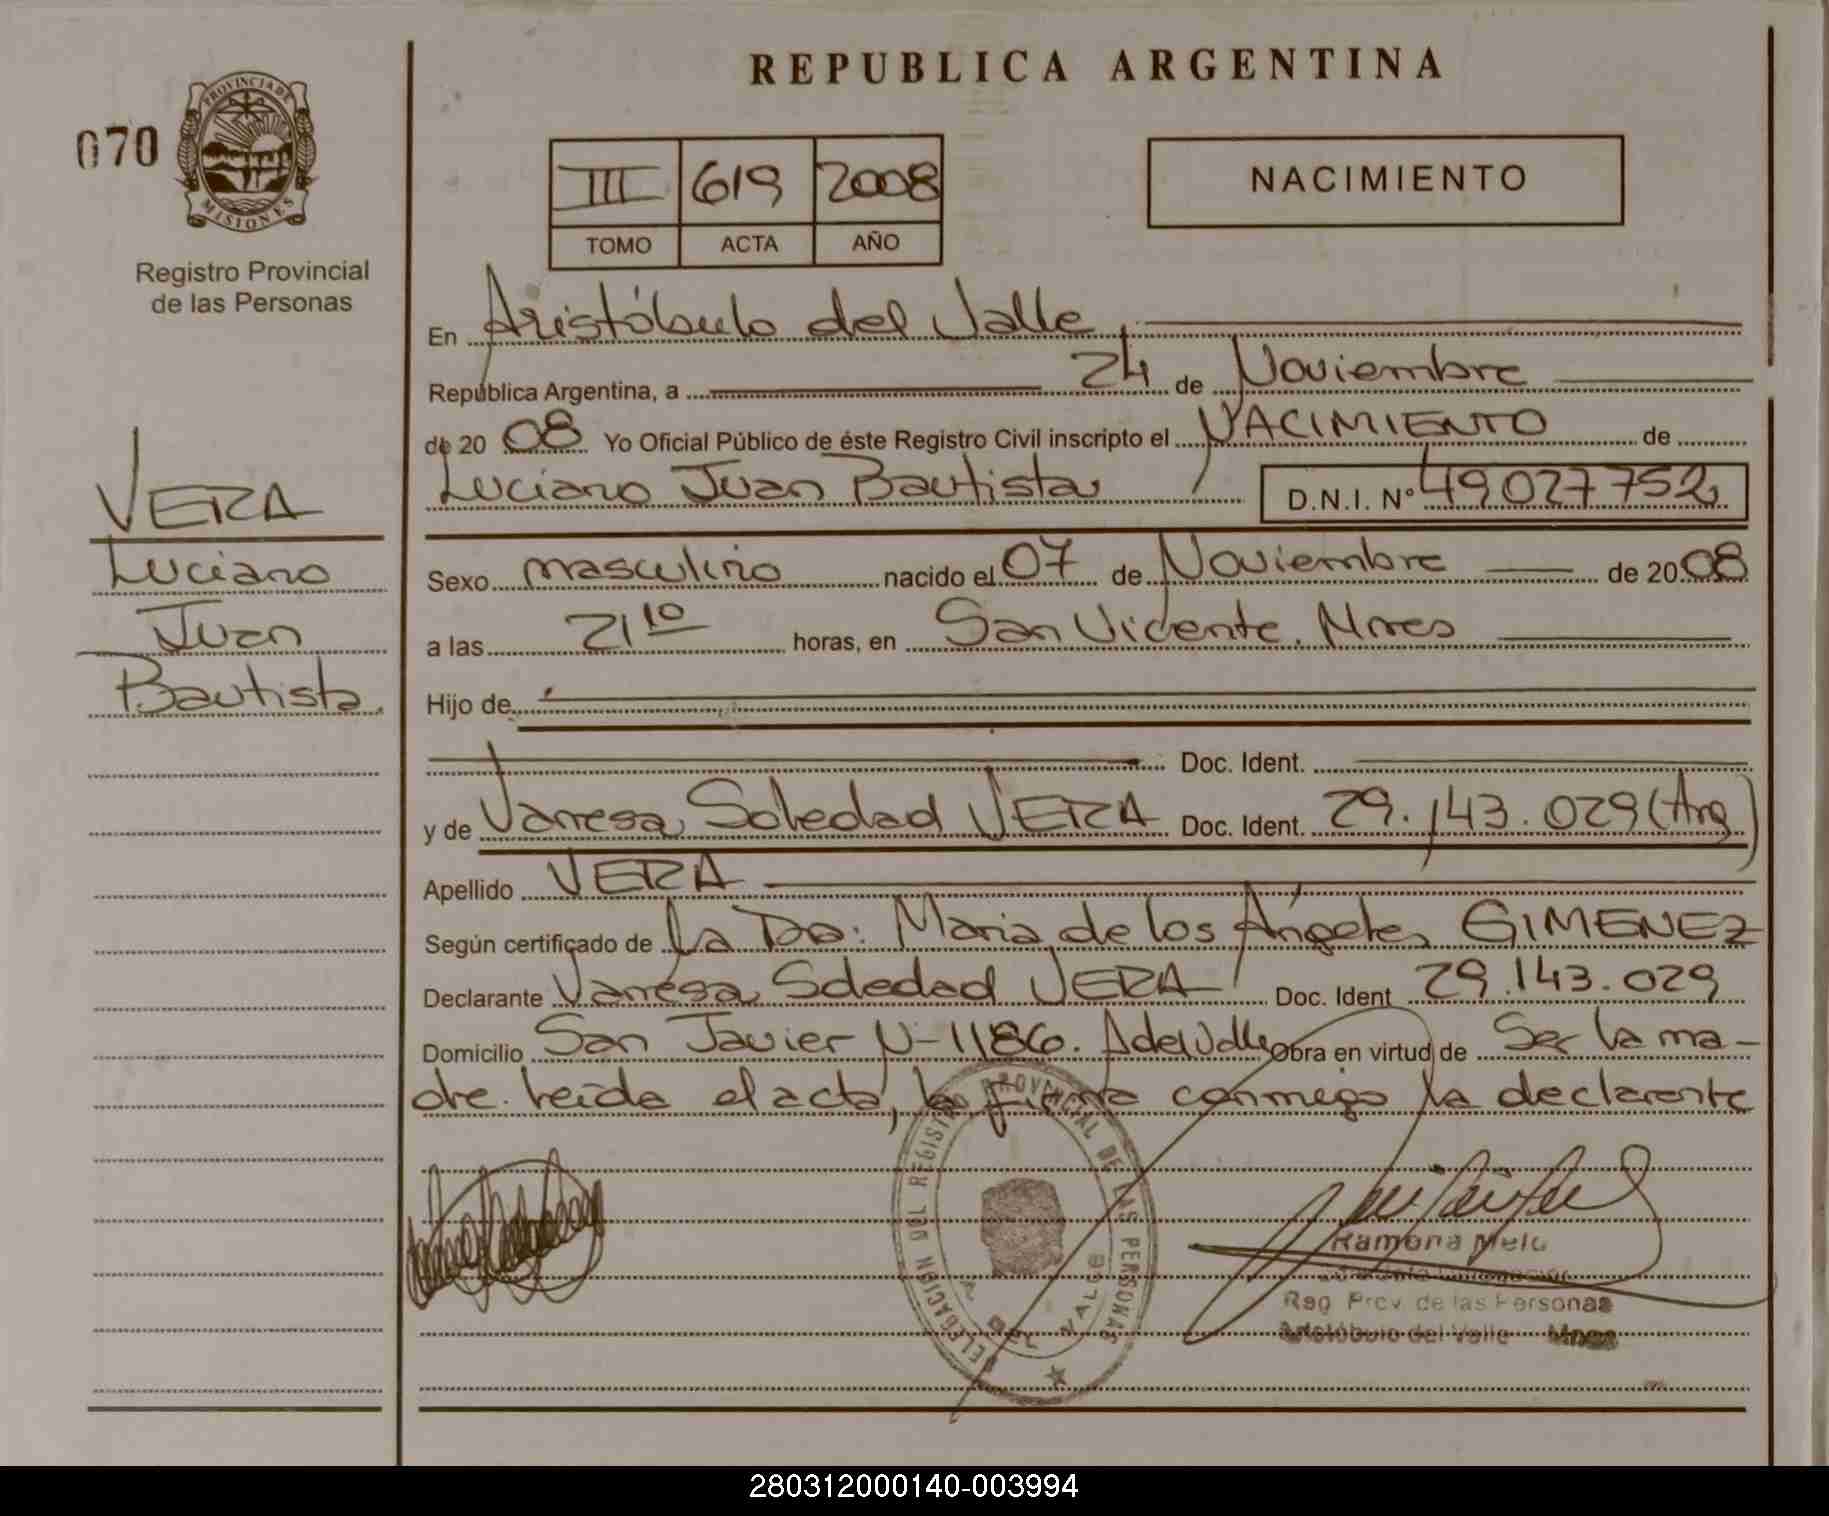 REPUBLICA ARGENTINA
070
PROVINCIA DE
MISIONES
Registro Provincial
de las Personas
III 619 2008
TOMO ACTA AÑO
NACIMIENTO
VERA
Luciano
Juan
Bautista
En Aristóbulo del Valle,
República Argentina, a 24 de Noviembre
de 20 08 Yo Oficial Público de éste Registro Civil inscripto el NACIMIENTO de
Luciano Juan Bautista D.N.I. Nº 49027752
Sexo masculino nacido el 07 de Noviembre de 20 08
a las 21 10 horas, en San Vicente. Mnes
Hijo de
Doc. Ident.
y de Vanesa Soledad VERA Doc. Ident. 29.143.029 (Arg)
Apellido VERA
Según certificado de la Dra: Maria de los Ángeles GIMENEZ
Declarante Vanesa Soledad VERA Doc. Ident 29.143.029
Domicilio San Javier N-1186. A del Valle Obra en virtud de Ser la ma-
dre. leida el acta, la firma conmigo la declarante
DELEGACION DEL REGISTRO PROVINCIAL DE LAS PERSONAS
DEL VALLE
Ramona Melo
Reg Prov. de las Personas
Aristóbulo del Valle Mnes
280312000140-003994